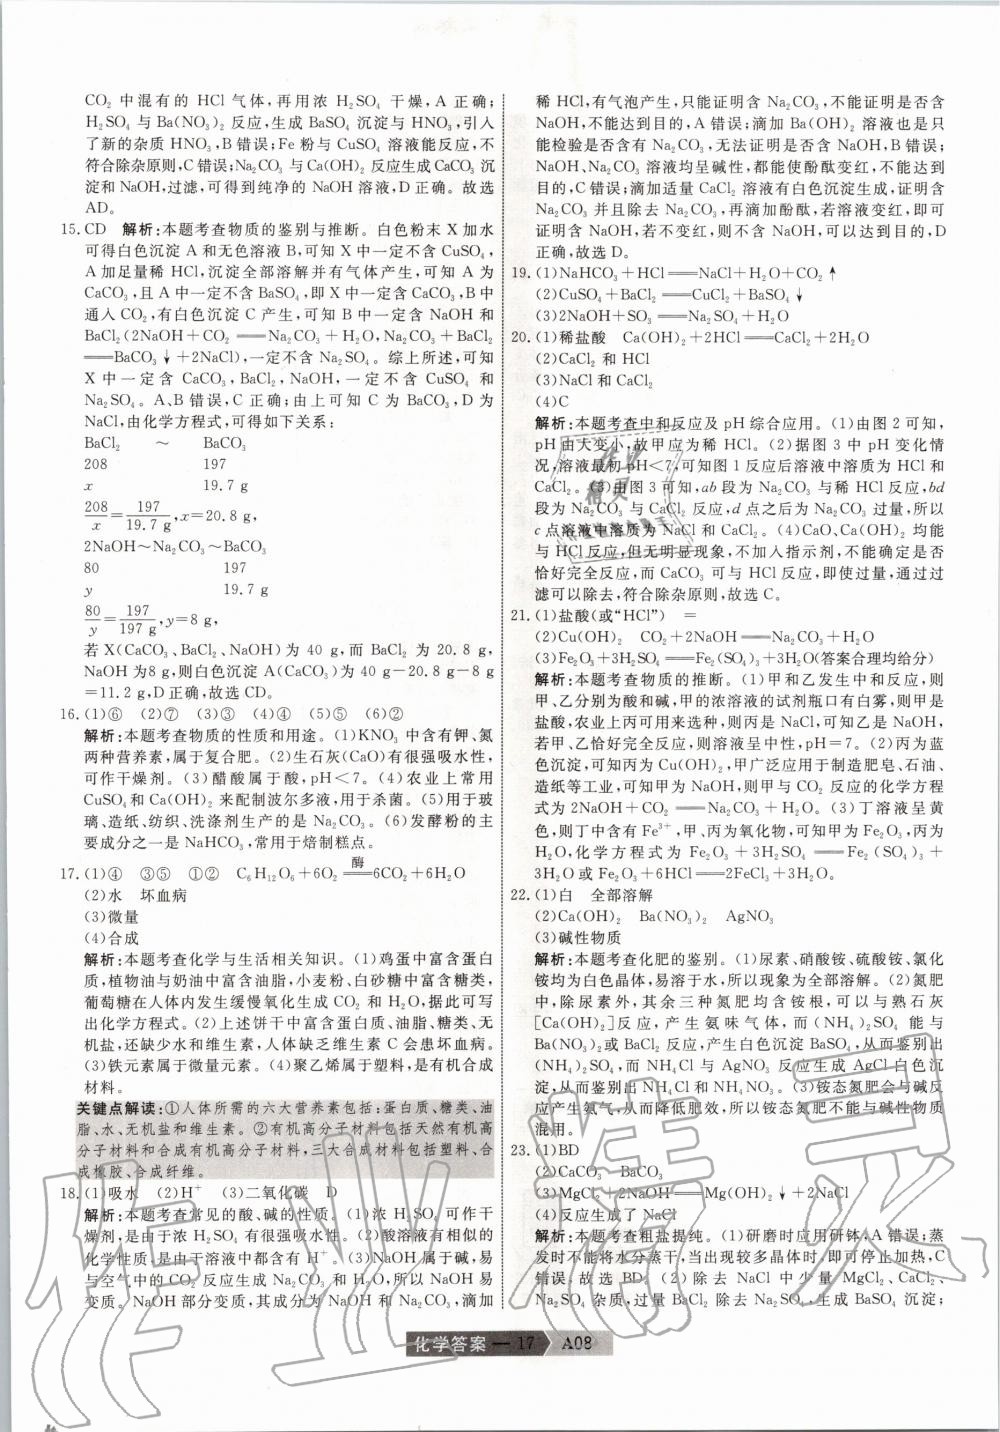 CO₂ 中混有的 HCl 气体,再用浓 H₂SO₄ 干燥,A 正确;
H₂SO₄ 与 Ba(NO₃)₂ 反应,生成 BaSO₄ 沉淀与 HNO₃,引入
了新的杂质 HNO₃,B 错误;Fe 粉与 CuSO₄ 溶液能反应,不
符合除杂原则,C 错误;Na₂CO₃ 与 Ca(OH)₂ 反应生成 CaCO₃ 沉
淀和 NaOH,过滤,可得到纯净的 NaOH 溶液,D 正确。故选
AD。
15. CD 解析:本题考查物质的鉴别与推断。白色粉末 X 加水
可得白色沉淀 A 和无色溶液 B,可知 X 中一定不含 CuSO₄,
A 加足量稀 HCl,沉淀全部溶解并有气体产生,可知 A 为
CaCO₃,且 A 中一定不含 BaSO₄,即 X 中一定含 CaCO₃,B 中
通入 CO₂,有白色沉淀 C 产生,可知 B 中一定含 NaOH 和
BaCl₂(2NaOH+CO₂ ══ Na₂CO₃+H₂O,Na₂CO₃+BaCl₂
══BaCO₃↓+2NaCl),一定不含 Na₂SO₄。综上所述,可知
X 中一定含 CaCO₃,BaCl₂,NaOH,一定不含 CuSO₄ 和
Na₂SO₄。A、B 错误,C 正确;由上可知 C 为 BaCO₃,D 为
NaCl,由化学方程式,可得如下关系:
BaCl₂ ～ BaCO₃
208 197
x 19.7 g
208/x=197/19.7 g,x=20.8 g,
2NaOH～Na₂CO₃～BaCO₃
80 197
y 19.7 g
80/y=197/197 g,y=8 g,
若 X(CaCO₃、BaCl₂、NaOH)为 40 g,而 BaCl₂ 为 20.8 g,
NaOH 为8 g,则白色沉淀 A(CaCO₃)为 40 g－20.8 g－8 g
=11.2 g,D 正确,故选 CD。
16. (1)⑥ (2)⑦ (3)③ (4)④ (5)⑤ (6)②
解析:本题考查物质的性质和用途。(1)KNO₃ 中含有钾、氮
两种营养素,属于复合肥。(2)生石灰(CaO)有很强吸水性,
可作干燥剂。(3)醋酸属于酸,pH<7。(4)农业上常用
CuSO₄ 和 Ca(OH)₂ 来配制波尔多液,用于杀菌。(5)用于玻
璃、造纸、纺织、洗涤剂生产的是 Na₂CO₃。(6)发酵粉的主
要成分之一是 NaHCO₃,常用于焙制糕点。
17. (1)④ ③⑤ ①② C₆H₁₂O₆+6O₂ ══(酶) 6CO₂+6H₂O
(2)水 坏血病
(3)微量
(4)合成
解析:本题考查化学与生活相关知识。(1)鸡蛋中富含蛋白
质,植物油与奶油中富含油脂,小麦粉、白砂糖中富含糖类,
葡萄糖在人体内发生缓慢氧化生成 CO₂ 和 H₂O,据此可写
出化学方程式。(2)上述饼干中富含蛋白质、油脂、糖类、无
机盐,还缺少水和维生素,人体缺乏维生素 C 会患坏血病。
(3)铁元素属于微量元素。(4)聚乙烯属于塑料,是有机合成
材料。
关键点解读:①人体所需的六大营养素包括:蛋白质、糖类、油
脂、水、无机盐和维生素。②有机高分子材料包括天然有机高
分子材料和合成有机高分子材料,三大合成材料包括塑料、合
成橡胶、合成纤维。
18. (1)吸水 (2)H⁺ (3)二氧化碳 D
解析:本题考查常见的酸、碱的性质。(1)浓 H₂SO₄ 可作干
燥剂,是由于浓 H₂SO₄ 有很强吸水性。(2)酸溶液有相似的
化学性质,是由于溶液中都含有 H⁺。(3)NaOH 属于碱,易
与空气中的 CO₂ 反应生成 Na₂CO₃ 和 H₂O,所以 NaOH 易
变质。NaOH 部分变质,其成分为 NaOH 和 Na₂CO₃,滴加
稀 HCl,有气泡产生,只能证明含 Na₂CO₃,不能证明是否含
NaOH,不能达到目的,A 错误;滴加 Ba(OH)₂ 溶液也是只
能检验是否含有 Na₂CO₃,无法证明是否含 NaOH,B 错误;
NaOH、Na₂CO₃ 溶液均呈碱性,都能使酚酞变红,不能达到
目的,C 错误;滴加适量 CaCl₂ 溶液有白色沉淀生成,证明有
Na₂CO₃ 并且除去 Na₂CO₃,再滴加酚酞,若溶液变红,即可
证明含 NaOH,若不变红,则不含 NaOH,可以达到目的,D
正确,故选 D。
19. (1)NaHCO₃+HCl══NaCl+H₂O+CO₂↑
(2)CuSO₄+BaCl₂══CuCl₂+BaSO₄↓
(3)2NaOH+SO₃══Na₂SO₄+H₂O
20. (1)稀盐酸 Ca(OH)₂+2HCl══CaCl₂+2H₂O
(2)CaCl₂ 和 HCl
(3)NaCl 和 CaCl₂
(4)C
解析:本题考查中和反应及 pH 综合应用。(1)由图 2 可知,
pH 由大变小,故甲应为稀 HCl。(2)据图 3 中 pH 变化情
况,溶液最初 pH<7,可知图 1 反应后溶液中溶质为 HCl 和
CaCl₂。(3)由图 3 可知,ab 段为 Na₂CO₃ 与稀 HCl 反应,bd
段为 Na₂CO₃ 与 CaCl₂ 反应,d 点之后为 Na₂CO₃ 过量,所以
c 点溶液中溶质为 NaCl 和 CaCl₂。(4)CaO、Ca(OH)₂ 均能
与 HCl 反应,但无明显现象,不加入指示剂,不能确定是否
恰好完全反应,而 CaCO₃ 可与 HCl 反应,即使过量,通过过
滤可以除去,符合除杂原则,故选 C。
21. (1)盐酸(或“HCl”) =
(2)Cu(OH)₂ CO₂+2NaOH══Na₂CO₃+H₂O
(3)Fe₂O₃+3H₂SO₄══Fe₂(SO₄)₃+3H₂O(答案合理均给分)
解析:本题考查物质的推断。(1)甲和乙发生中和反应,则
甲、乙分别为酸和碱,甲的浓溶液的试剂瓶口有白雾,则甲是
盐酸,农业上丙可用来选种,则丙是 NaCl,可知乙是 NaOH,
若甲、乙恰好完全反应,则溶液呈中性,pH=7。(2)丙为蓝
色沉淀,可知丙为 Cu(OH)₂,甲广泛应用于制造肥皂、石油、
造纸等工业,可知甲为 NaOH,则甲与 CO₂ 反应的化学方程
式为 2NaOH+CO₂══Na₂CO₃+H₂O。(3)丁溶液呈黄
色,则丁中含有 Fe³⁺,甲、丙为氧化物,可知甲为 Fe₂O₃,丙为
H₂O,化学方程式为 Fe₂O₃+3H₂SO₄══Fe₂(SO₄)₃+
3H₂O 或 Fe₂O₃+6HCl══2FeCl₃+3H₂O。
22. (1)白 全部溶解
(2)Ca(OH)₂ Ba(NO₃)₂ AgNO₃
(3)碱性物质
解析:本题考查化肥的鉴别。(1)尿素、硝酸铵、硫酸铵、氯化
铵均为白色晶体,易溶于水,所以现象为全部溶解。(2)氮肥
中,除尿素外,其余三种氮肥均含铵根,可以与熟石灰
[Ca(OH)₂]反应,产生氨味气体,而(NH₄)₂SO₄ 能与
Ba(NO₃)₂或 BaCl₂ 反应,产生白色沉淀 BaSO₄,从而鉴别出
(NH₄)₂SO₄,而 NH₄Cl 与 AgNO₃ 反应生成 AgCl 白色沉
淀,从而鉴别出 NH₄Cl。(3)铵态氮肥会与碱反
应产生氨气,从而降低肥效,所以铵态氮肥不能与碱性物质
混用。
23. (1)BD
(2)CaCO₃ BaCO₃
(3)MgCl₂+2NaOH══Mg(OH)₂↓+2NaCl
(4)反应生成了 NaCl
解析:本题考查粗盐提纯。(1)研磨时应用研钵,A 错误;蒸
发时不能将水分蒸干,当出现较多晶体时,即可停止加热,C
错误,故选 BD。(2)除去 NaCl 中少量 MgCl₂、CaCl₂、
Na₂SO₄ 杂质,过量 BaCl₂ 除去 Na₂SO₄,生成 BaSO₄ 沉淀;
化学答案 — 17 A08
作业精灵